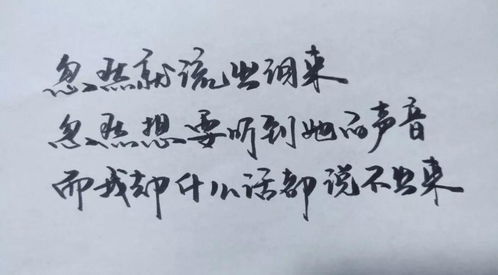 忽然就流出泪来
忽然想要听到她的声音
而我却什么话都说不出来